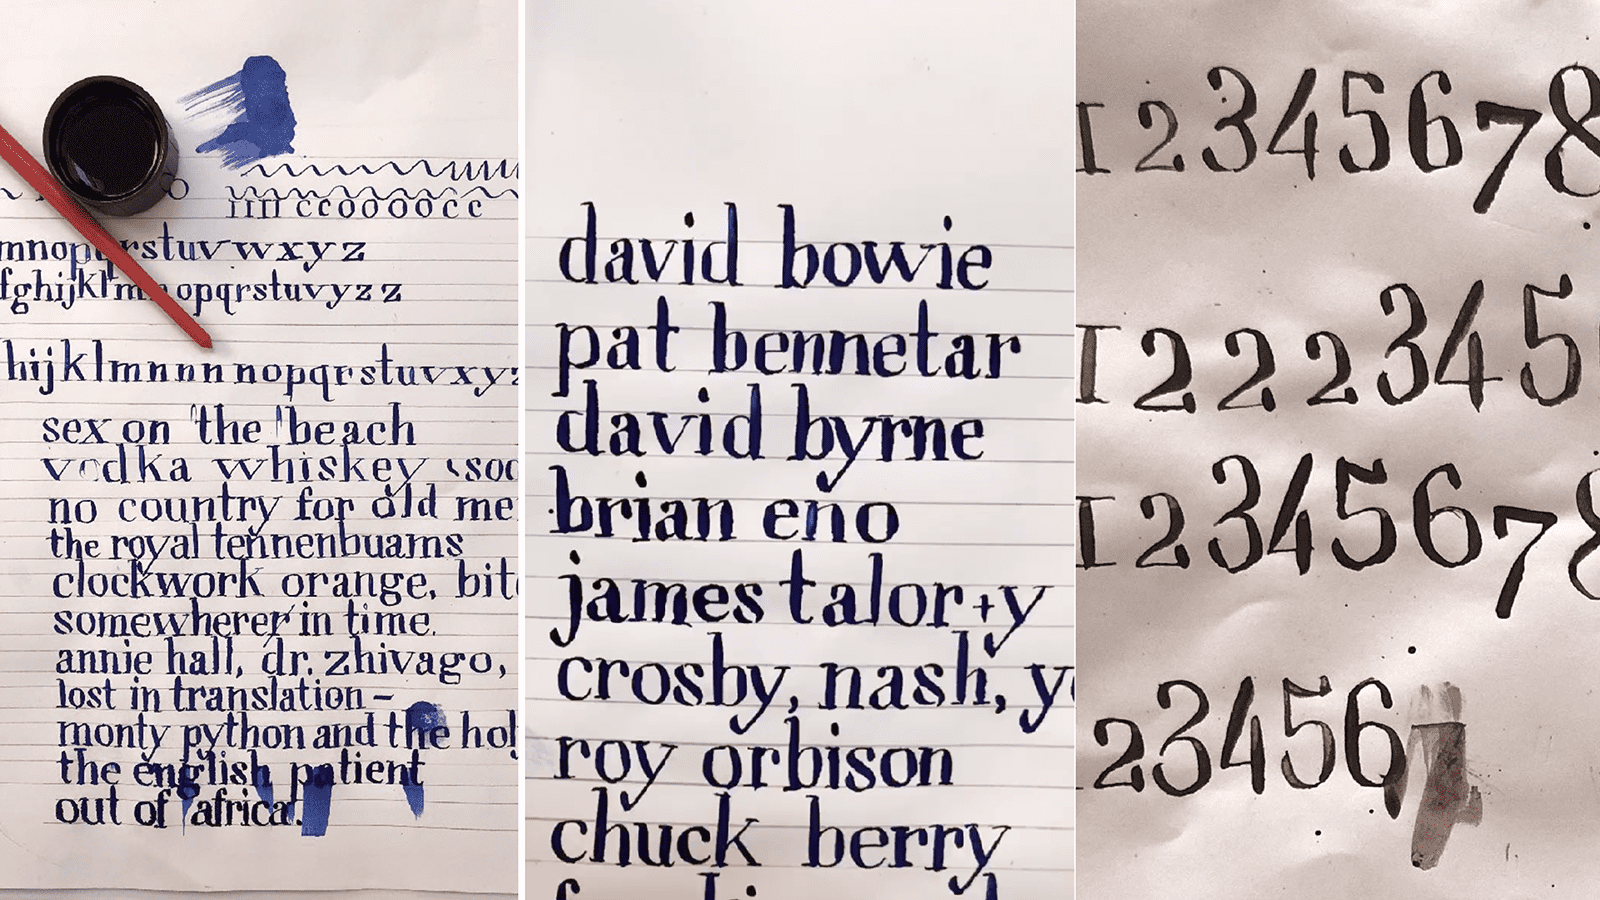 ııııı ccooooocc
mnopqrstuvwxyz
fghijklmnopqrstuvyzz
hijklmnnnnnopqrstuvxyz
sex on the beach
vodka whiskey
no country for old me
the royal tennenbuams
clockwork orange, bit
somewherer in time.
annie hall, dr. zhivago,
lost in translation –
monty python and the hol
the english patient
out of africa.
david bowie
pat bennetar
david byrne
brian eno
james talor + y
crosby, nash, y
roy orbison
chuck berry
1 2 3 4 5 6 7 8
1 2 2 2 3 4 5
1 2 3 4 5 6 7 8
2 3 4 5 6